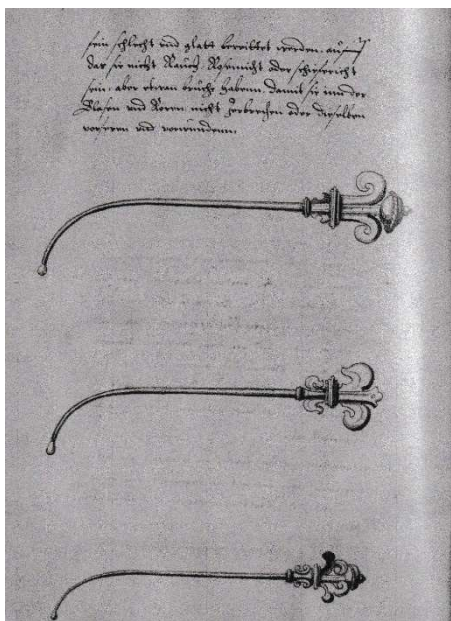 fein schlecht und glatt bereittet werden, auff
das sie nicht Rauch, Rosinnicht oder schiefericht
sein, aber etwan brüche habenn, damit sie inn der
Blasen und Roren, nicht zerbrechen oder dieselben
und vorwundenn.